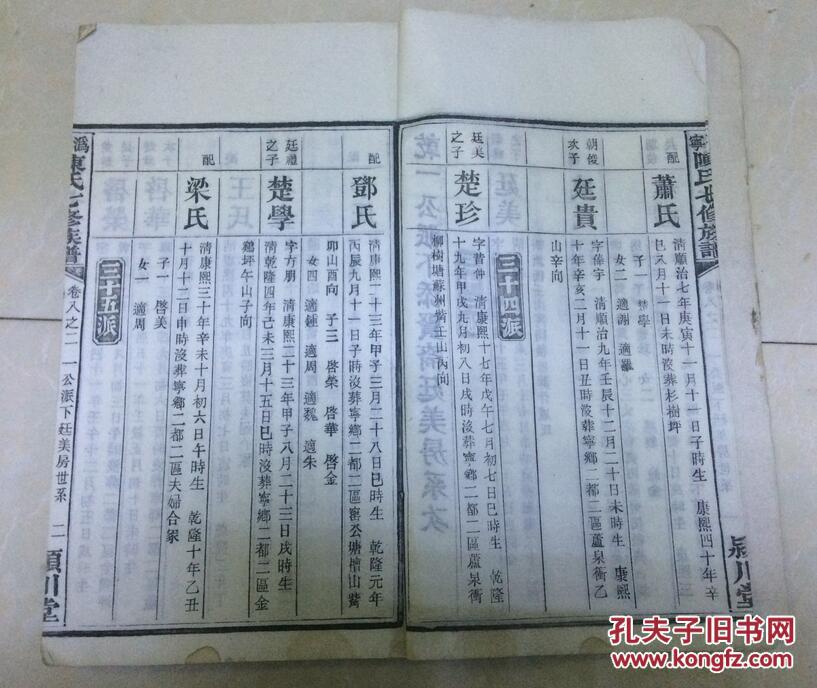 配
蕭氏
清順治七年庚寅十一月十一日子時生 康熙四十年辛
巳八月十一日未時沒葬杉樹坪
子一 楚學
女二 適謝 適羅
朝俊
次子
廷貴
字偉宇 清順治九年壬辰十二月二十日未時生 康熙
十年辛亥二月十一日丑時沒葬寧鄉二都二區蘆泉衝乙
山辛向
三十四派
廷美
之子
楚珍
字昔仲 清康熙十七年戊午七月初七日巳時生 乾隆
十九年甲戌九月初八日戌時沒葬寧鄉二都二區蘆泉衝
柳樹塘蘇州嘴壬山丙向
配
鄧氏
清康熙二十三年甲子三月二十八日巳時生 乾隆元年
丙辰九月十一日子時沒葬寧鄉二都二區窰公塘檀山嘴
卯山酉向 子三 啓榮 啓華 啓金
女四 適鍾 適周 適魏 適朱
廷禮
之子
楚學
字方朋 清康熙二十三年甲子八月二十三日戌時生
清乾隆四年己未三月十五日巳時沒葬寧鄉二都二區金
雞坪午山子向
配
梁氏
清康熙三十年辛未十月初六日午時生 乾隆十年乙丑
十月十二日申時沒葬寧鄉二都二區夫婦合冢
子一 啓美
女一 適周
三十五派
溈
陳氏七修族譜
卷八之二 一公派下廷美房世系 二
潁川堂
寧
陳氏七修族譜
潁川堂
孔夫子旧书网
www.kongfz.com